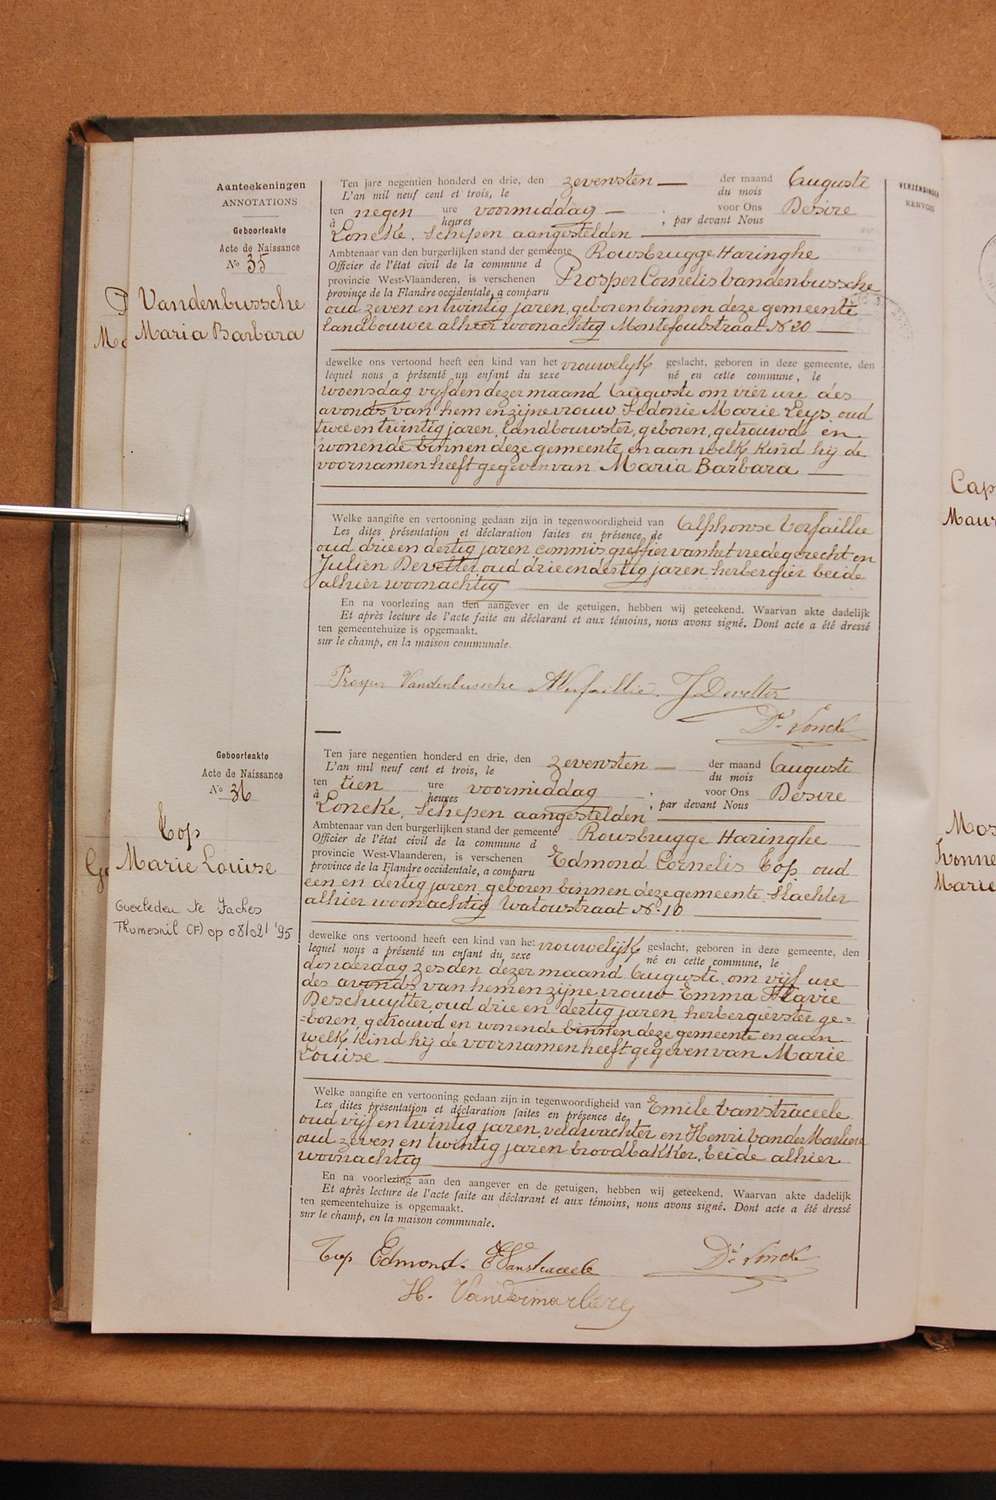 Aanteekeningen
ANNOTATIONS
Geboorteakte
Acte de Naissance
No 35
Vandenbussche
Maria Barbara
Ten jare negentien honderd en drie, den zevensten der maand Auguste
L'an mil neuf cent et trois, le du mois
ten negen ure voormiddag voor Ons Desire
à heures ; par devant Nous
Loncke, Schepen aangestelden
Ambtenaar van den burgerlijken stand der gemeente Rousbrugge Haringhe
Officier de l'état civil de la commune d
provincie West-Vlaanderen, is verschenen Prosper Cornelis Vandenbussche
province de la Flandre occidentale, a comparu
oud zeven en twintig jaren, geboren binnen deze gemeente
landbouwer alhier woonachtig Montefoubstraat No 20
dewelke ons vertoond heeft een kind van het vrouwelijk geslacht, geboren in deze gemeente, den
lequel nous a présenté un enfant du sexe né en cette commune, le
woensdag vijfden dezer maand Auguste om vier ure des
avonds van hem en zijne vrouw Sidonie Marie Leys, oud
twee en twintig jaren, landbouwster, geboren, getrouwd en
wonende binnen deze gemeente en aan welk kind hij de
voornamen heeft gegeven van Maria Barbara
Welke aangifte en vertooning gedaan zijn in tegenwoordigheid van Alphonse Verfaillie
Les dites présentation et déclaration faites en présence de
oud drie en dertig jaren commis greffier van het vredegerecht en
Julien Devetter oud drie en dertig jaren, herbergier beide
alhier woonachtig
En na voorlezing aan den aangever en de getuigen, hebben wij geteekend. Waarvan akte dadelijk
Et après lecture de l'acte faite au déclarant et aux témoins, nous avons signé. Dont acte a été dressé
ten gemeentehuize is opgemaakt.
sur le champ, en la maison communale.
Prosper Vandenbussche AVerfaillie J Devetter
Dré Loncke
Geboorteakte
Acte de Naissance
No 36
Top
Marie Louise
Overleden te Faches
Thumesnil (F) op 08/02/'95
Ten jare negentien honderd en drie, den zevensten der maand Auguste
L'an mil neuf cent et trois, le du mois
ten tien ure voormiddag voor Ons Desire
à heures ; par devant Nous
Loncke, Schepen aangestelden
Ambtenaar van den burgerlijken stand der gemeente Rousbrugge Haringhe
Officier de l'état civil de la commune d
provincie West-Vlaanderen, is verschenen Edmond Cornelis Top oud
province de la Flandre occidentale, a comparu
een en dertig jaren, geboren binnen deze gemeente Slachter
alhier woonachtig Watoustraat No 10
dewelke ons vertoond heeft een kind van het vrouwelijk geslacht, geboren in deze gemeente, den
lequel nous a présenté un enfant du sexe né en cette commune, le
donderdag zesden dezer maand Auguste, om vijf ure
des avonds van hem en zijne vrouw Emma Flavie
Deschuytter, oud drie en dertig jaren herbergierster ge=
=boren, getrouwd en wonende binnen deze gemeente en aan
welk kind hij de voornamen heeft gegeven van Marie
Louise
Welke aangifte en vertooning gedaan zijn in tegenwoordigheid van Emile Vanstraceele
Les dites présentation et déclaration faites en présence de
oud vijf en twintig jaren, veldwachter en Henri Van der Marliere
oud zeven en twintig jaren broodbakker, beide alhier
woonachtig
En na voorlezing aan den aangever en de getuigen, hebben wij geteekend. Waarvan akte dadelijk
Et après lecture de l'acte faite au déclarant et aux témoins, nous avons signé. Dont acte a été dressé
ten gemeentehuize is opgemaakt.
sur le champ, en la maison communale.
Top Edmond. E Vanstraceele Dré Loncke
H. Vandermarliere
Cap
Maur
Mos
Ivonne
Marie